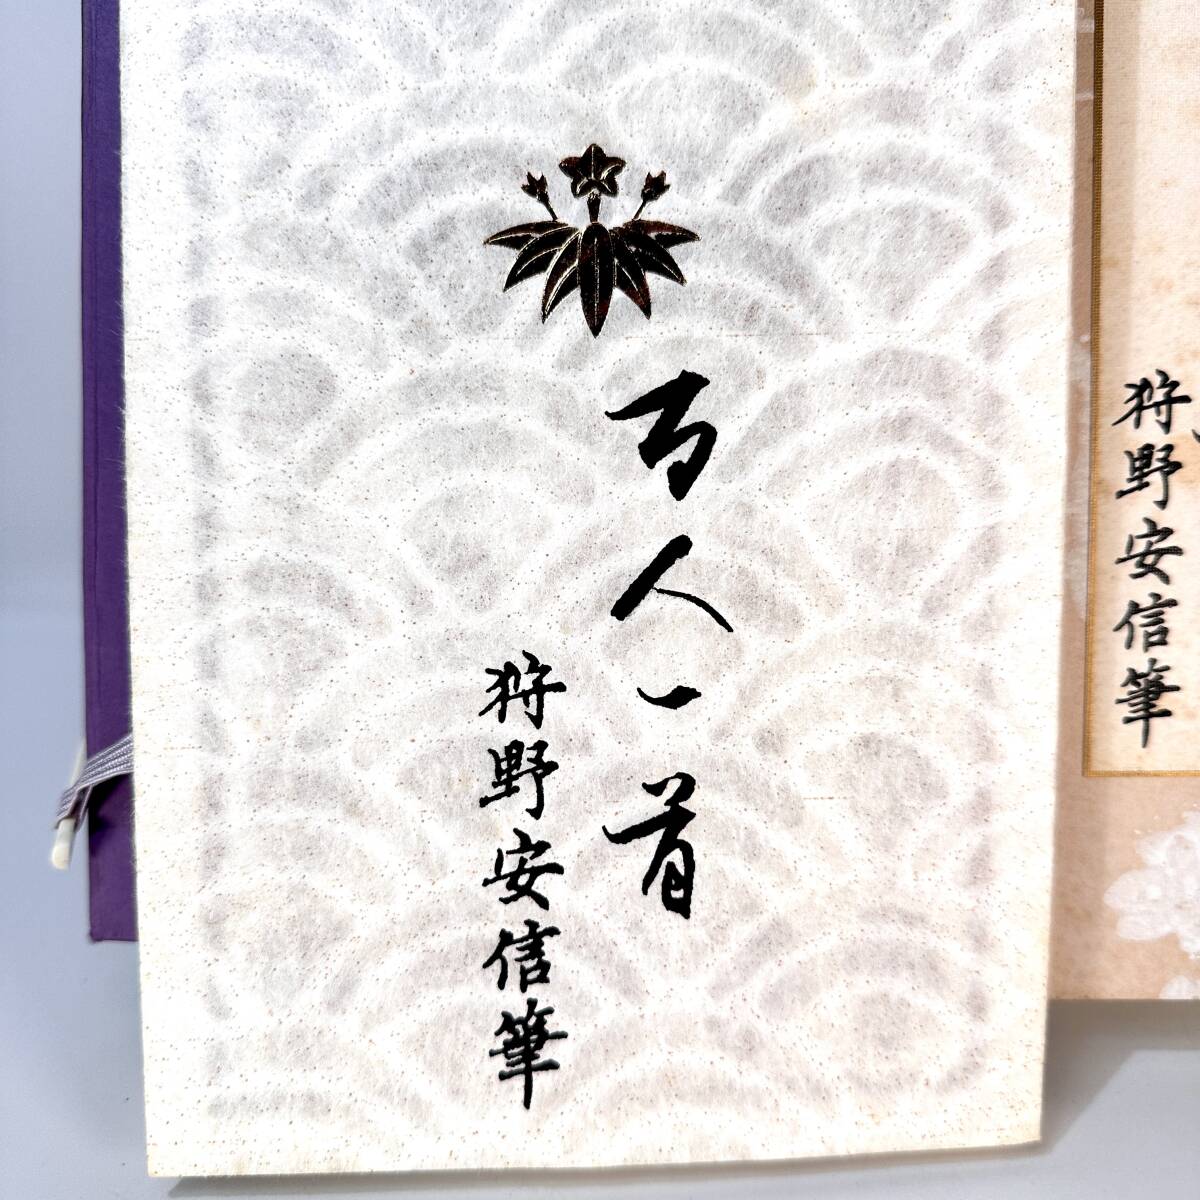 百人一首
狩野安信筆
狩野安信筆